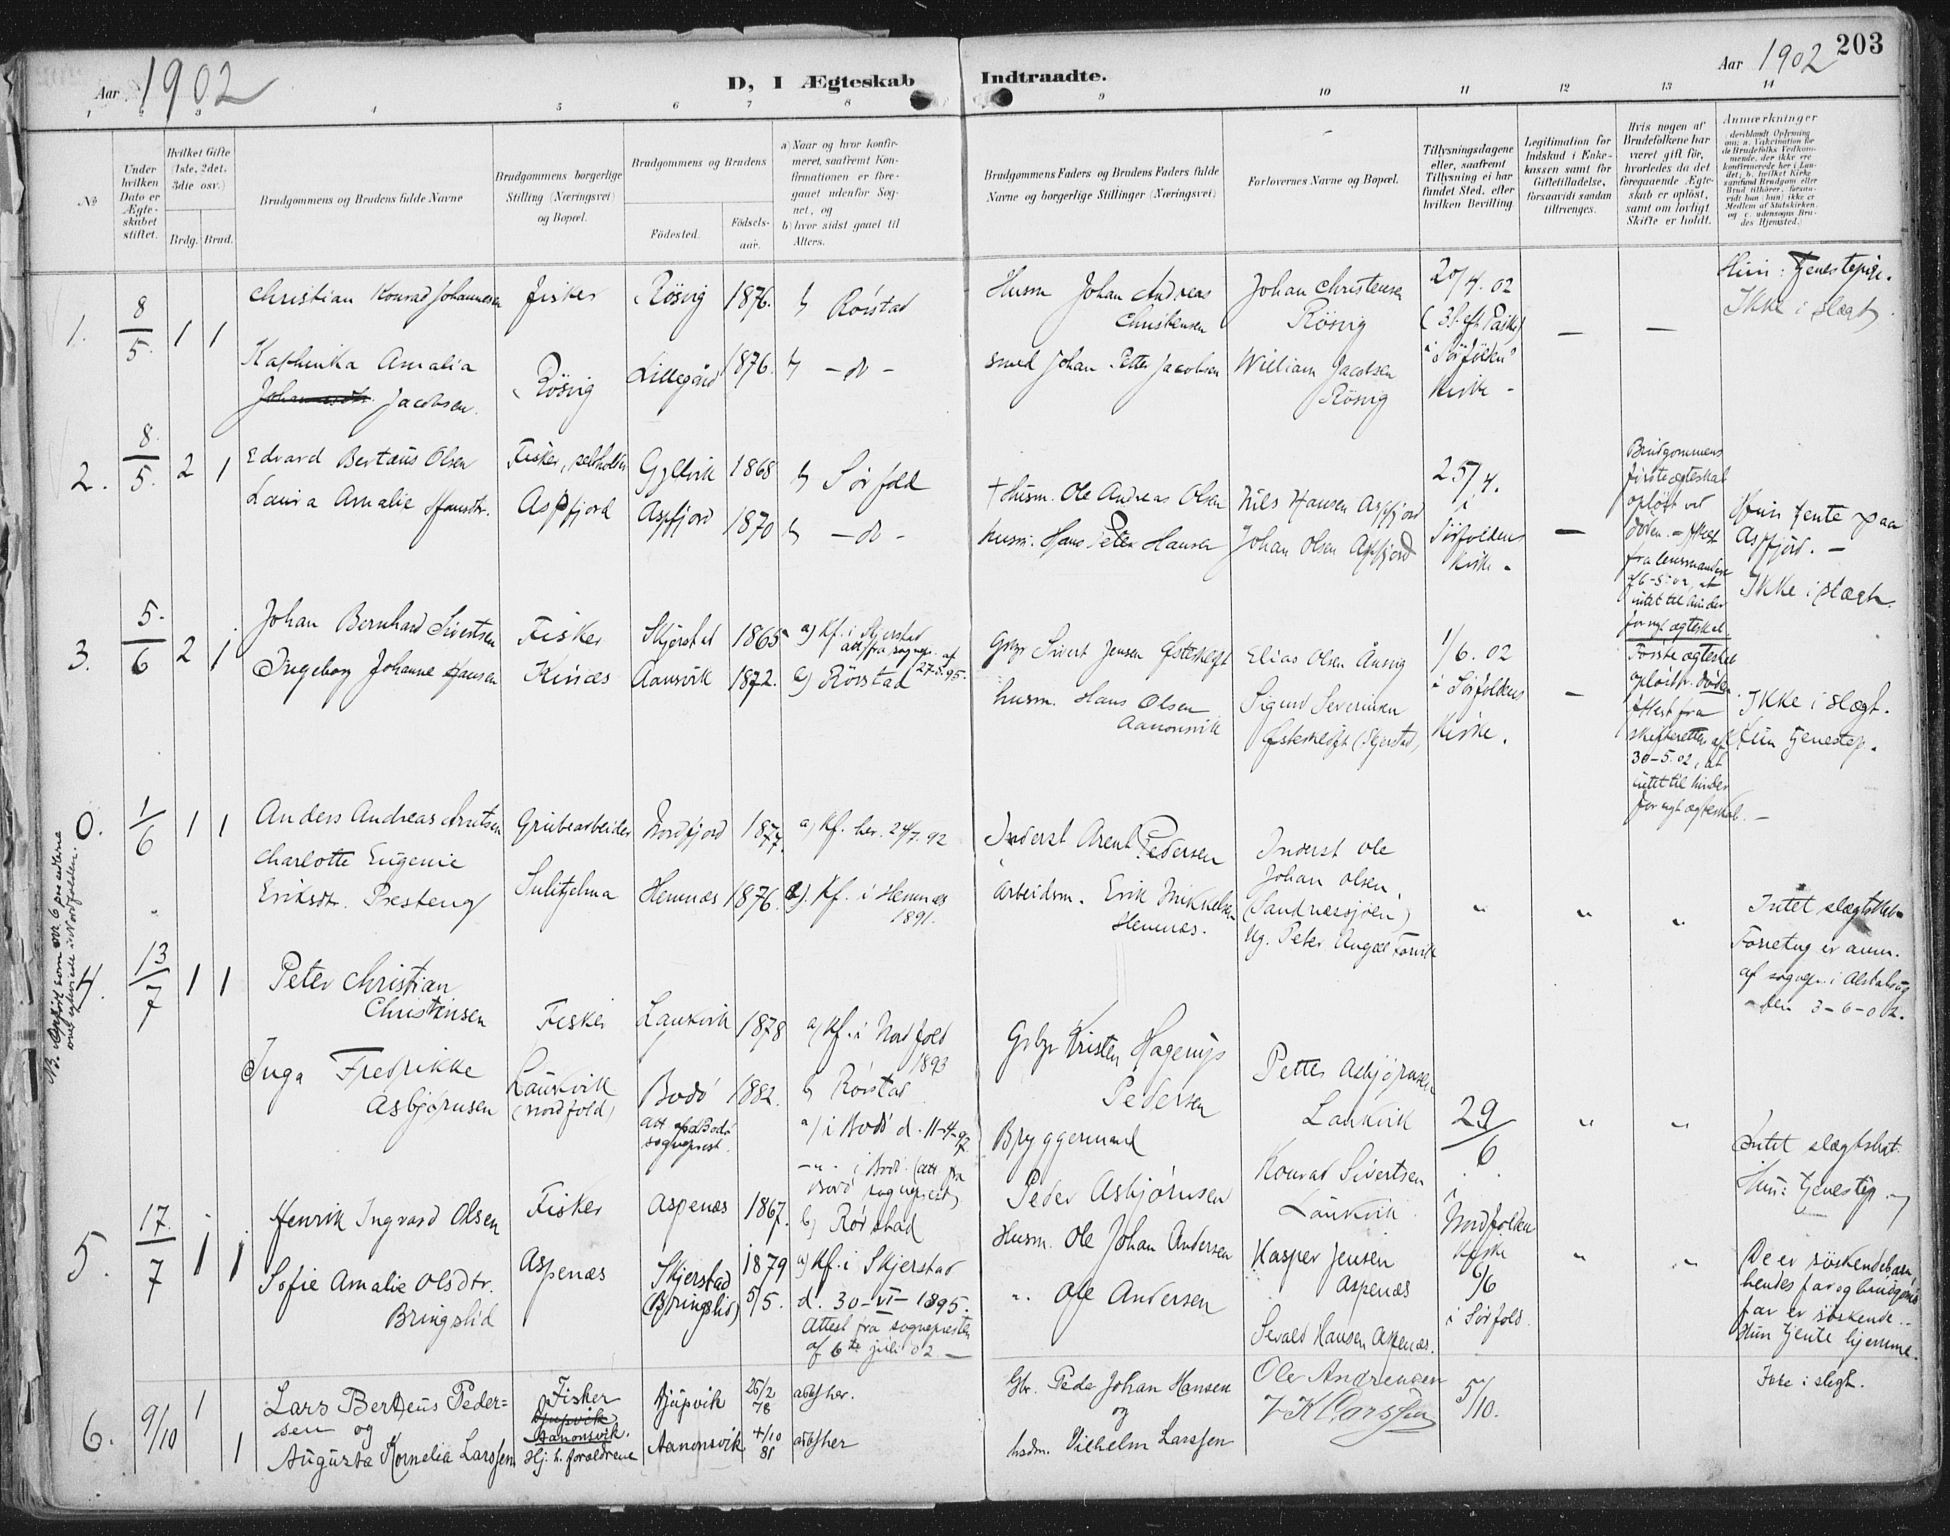 Aar 1902
D, I Ægteskab Indtraadte.
Aar 1902
203
1 2 3 4 5 6 7 8 9 10 11 12 13 14
No
Under hvilken Dato er Ægteskabet stiftet.
Hvilket Gifte (1ste, 2det, 3die osv.)
Brdg. Brud.
Brudgommens og Brudens fulde Navne
Brudgommens borgerlige Stilling (Næringsvei) og Bopæl.
Brudgommens og Brudens
Fødested.
Fødselsaar.
a) Naar og hvor konfirmeret, saafremt Konfirmationen er foregaaet udenfor Sognet, og
b) hvor sidst gaaet til Alters.
Brudgommens Faders og Brudens Faders fulde Navne og borgerlige Stillinger (Næringsvei)
Forlovernes Navne og Bopæl.
Tillysningsdagene eller, saafremt Tillysning ei har fundet Sted, efter hvilken Bevilling
Legitimation for Indskud i Enkekassen samt for Giftetilladelse, forsaavidt sandan tiltrænges.
Hvis nogen af Brudefolkene har været gift før, hvorledes da det foregaaende Ægteskab er opløst, samt om lovligt Skifte er holdt.
Anmærkninger
1.
8/5.
1 1
Christian Konrad Johannesen
Fisker
Røsvig
1876.
b) Rørstad
Husm Johan Andreas
Christensen
Johan Christensen
Røsvig
20/4.02
(3 S. eft. Påske)
i Sørfolden
Kirke -
—
—
Hun: tjenestepige.
Ikke i slægt.
Kathinka Amalia
Johannesdtr. Jacobsen.
Røsvig
Lillegård
1876.
b) - do -
Smed Johan Petter Jacobsen
William Jacobsen
Røsvig
2.
8/5.
2 1
Edvard Bertæus Olsen
Fisker, selvholden
Gyllvik
1868
b) Sørfold
† Husm. Ole Andreas Olsen
Nils Hansen Aspfjord
25/4.
i
Sørfolden
Kirke.
—
Brudgommens
første ægteskab
opløst ved
døden. - Attest
fra lensmanden
af 6-5-02, at
intet til hinder
for nyt ægteskab
Hun tjente paa
Aspfjord. -
Ikke i slægt.
Laura Amalie Hansdtr.
Aspfjord
Aspfjord
1870
b) - do -
Husm. Hans Peter Hansen
Johan Olsen Aspfjord
3.
5./6
2 1
Johan Bernhard Sivertsen
Fisker
Skjerstad
1865
a) Kf. i Skjerstad
att. fra sognepr. af
27-5-95.
Gbr Sivert Jensen Østerkløft
Elias Olsen Ånsvig
1/6.02
i Sørfoldens
Kirke.
—
Første ægteskab
opløst v. døden.
Attest fra
skifteretten af
30-5.02, at
intet til hinder
for nyt ægteskab. -
Ikke i slægt.
Hun tjenestep.
Ingeborg Johanne Hansen
Kines
Aansvik
1872.
b) Rørstad
husm. Hans Olsen
Aanonsvik
Sigurd Severinsen
Østerkløft (Skjerstad)
0.
1/6
1 1
Anders Andreas Arntsen
Grubearbeider
Nordfjord
1877.
a) Kf. her. 24/7.92
Inderst Arent Pedersen
Inderst Ole
Johan Olsen.
(Sandnessjøen)
Charlotte Eugenie
Eriksdtr. Presteng
Sulitjelma
Hemnæs
1876.
a). Kf. i Hemnæs
1891.
Arbeidsm. Erik Mikkelsen
Hemnæs.
Ug. Peter Angel Forvik
" " "
Intet slægtskab.
Foretag er anm.
af sognepr. i Alstahaug
den 3-6-02.
NB. Opført som No 6
4.
13/7
1 1
Peter Christian
Christensen
Fisker
Laukvik
1878
a) Kf. i Nordfold
1893
b) Rørstad
Gbr Kristen Hagerup
Pedersen
Petter Asbjørnsen
Laukvik
29/6
" "
Intet slægtskab.
Hun: tjenestep.
Inga Fredrikke
Asbjørnsen
Laukvik
(Nordfold)
Bodø
1882.
att. fra Bodø
sogneprest.
a) i Bodø d. 11-4-97
- " - i Bodø (att. fra
Bodø sogneprest)
Bryggermand
Peder Asbjørnsen
Konrad Sivertsen
Laukvik
i
Nordfolden
Kirke
5.
17./7
1 1
Henrik Ingvard Olsen
Fisker
Aspenæs
1867.
b) Rørstad
Husm. Ole Johan Andersen
Kasper Jensen
Aspenæs
6/6
i Sørfold.
" "
De er søskendebarn
hendes far og brudgoms
far er søskende.
Hun tjente hjemme.
Sofie Amalie Olsdtr.
Bringslid
Aspenæs
Skjerstad
(Bringslid)
1879
5/5.
a) Kf. i Skjerstad
d. 30-VI-1895.
Attest fra sognepresten
af 6te juli 02. —
" Ole Andersen
Sevald Hansen Aspenæs.
6.
9/10
1
Lars Bertheus Pedersen
og
Fisker
Djupvik
Aanonsvik.
Djupvik
25/2 78
a & b her.
Gbr. Peder Johan Hansen
og
Ole Andreassen
5/10.
Ikke i slegt.
1
Augusta Kornelia Larssen
Hj. h. forældrene
Aanonsvik
4/10 81
a & b her
hsdm. Vilhelm Larssen